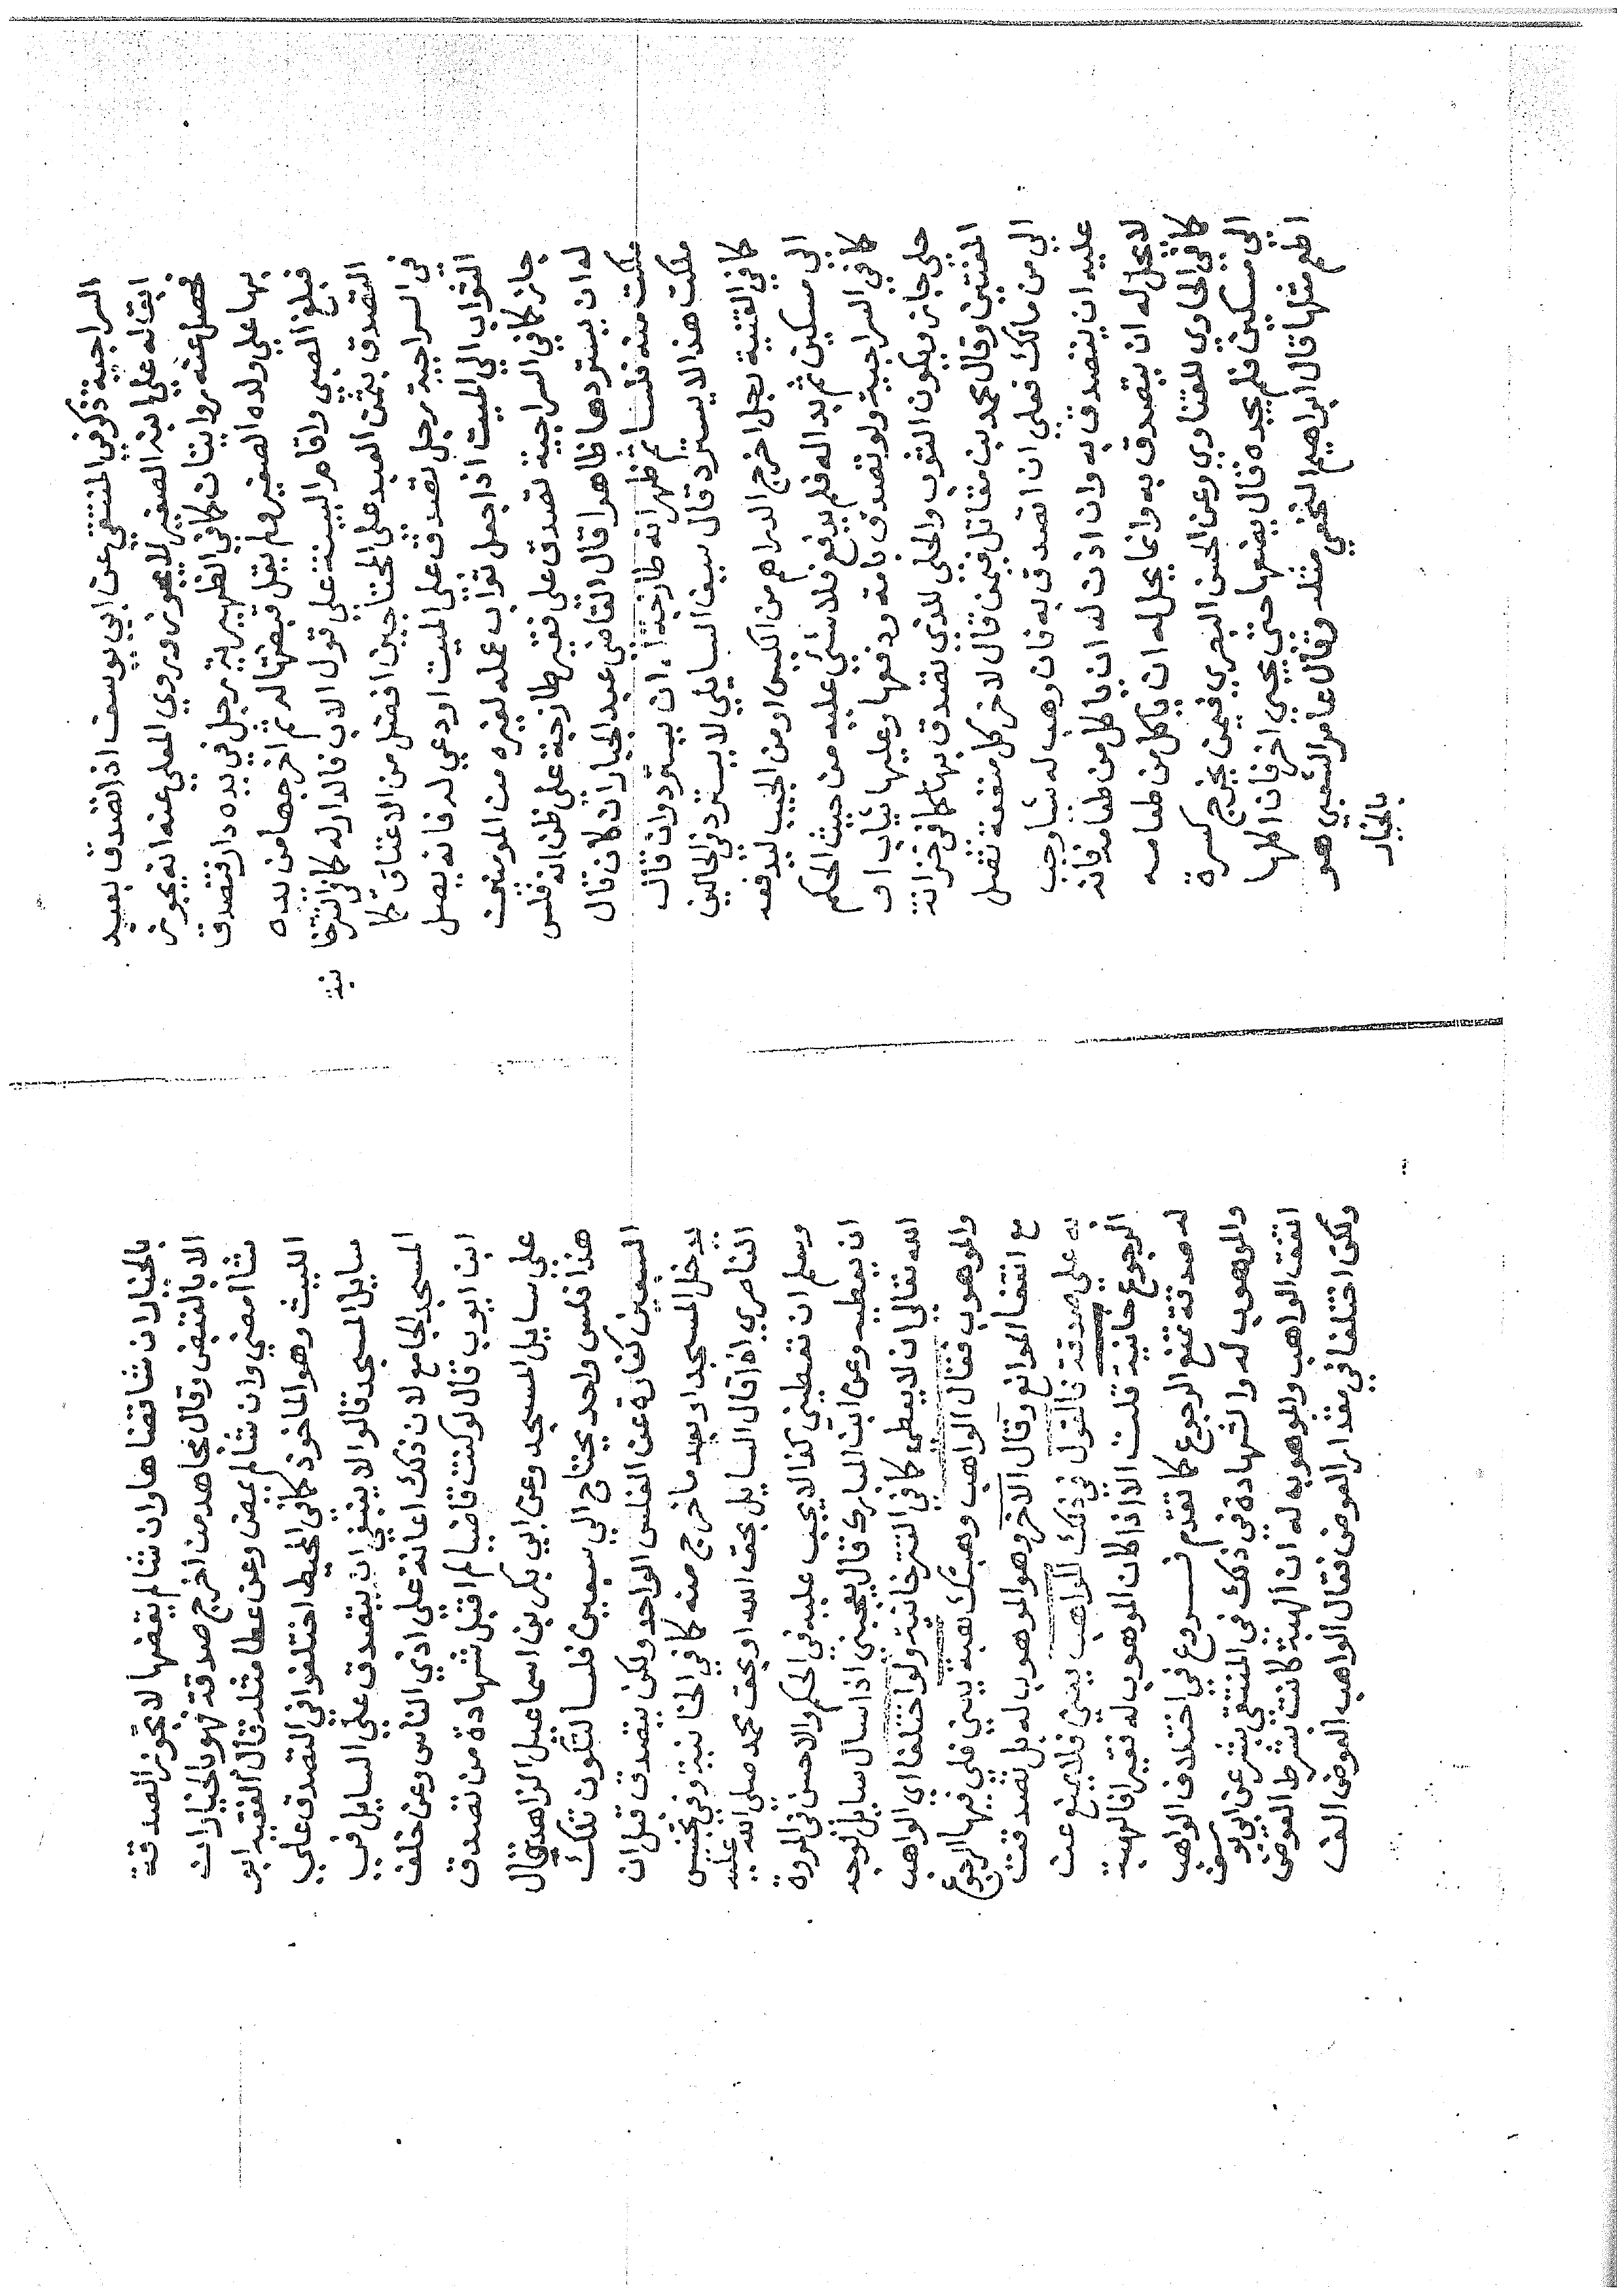 السراجية ذكر في المنتقي عن ابي يوسف اذا تصدق بعبد
ابق له علي ابنه الصغير لا يجوز وروي المعلي عنه انه يجوز
فحصل عنه روايتان كما في الظهيرية رجل في يده دار فتصدق
بها علي ولده الصغير ولم يقل قبضتها له ثم اخرجها من يده
فبلغ الصبي واقام البينة علي قول الاب فالدار له كما في التترخا
نية
التصدق بثمن العبد على المحتاجين افضل من الاعتاق كما
في السراجية رجل تصدق على الميت او دعي له فانه يصل
الثواب الي الميت اذا جعل ثواب عمله لغيره من المومنين
جاز كما في السراجية تصدق على فقير طازجة على ظن انه فلس
له ان يستردها ظاهرا قال القاضي عبد الجبار ان كان قال
ملكت منه فلسا ثم ظهر انه طازجة له ان يسترد وان قال
ملكت هذا لا يسترد قال سيف السايلي لا يسترد في الحالين
كما في القنية رجل اخرج الدراهم من الكيس او من الجيب ليدفعه
الي مسكين ثم بدا له فلم يدفع فلا شئي عليه من حيث الحكم
كما في السراجية ولو تصدق بامة ودفعها وعليها ثياب او
حلي جاز ويكون الثوب والحلي للذي تصدق بها كما في خزانة
المفتين وقال محمد بن مقاتل فيمن قال لاخر كل منفعة تصل
الي من مالك فعلي ان اتصدق به فان وهب له شا وجب
عليه ان يتصدق به وان اذن له ان ياكل من طعامه فانه
لا يحل له ان يتصدق به وانما يحل له ان ياكل من طعامه
كما في الحاوي للفتاوي وعن الحسن البصري فيمن يخرج كسرة
الي مسكين فلم يجده قال يضعها حتى يجيي اخر فان اكلها
اطعم مثلها قال ابراهيم النخعي مثله وقال عامر الشعبي هو
بالخيار
بالخيار ان شا قضاها وان شا لم يقضها لا تجوز الصدقة
الا بالقبض وقال مجاهد من اخرج صدقة فهو بالخيار ان
شا امضي وان شا لم يمض وعن عطا مثله قال الفقيه ابو
الليث وهو الماخوذ كما في المحيط اختلفوا في التصدق علي
سايل المسجد قالوا لا ينبغي ان يتصدق علي السايل في
المسجد الجامع لان ذلك اعانة على اذي الناس وعن خلف
ابن ايوب قال لو كنت قاضيا لم اقبل شهادة من تصدق
علي سايل المسجد وعن ابي بكر بن اسماعيل الزاهد قال
هذا فلس واحد يحتاج الي سبعين فلسا لتكون تلك
السبعين كفارة عن الفلس الواحد ولكن يتصدق قبل ان
يدخل المسجد او بعد ما خرج منه كما في الخانية وفي تجنيس
الناصري اذا قال السايل بحق الله او بحق محمد صلى الله عليه
وسلم ان تعطيني كذا لا يجب عليه في الحكم والاحسن في المروة
ان يعطيه وعن ابن المبارك قال يعجبني اذا سال سايل لوجه
الله تعالي ان لا يعطي كما في التترخانية ولو اختلفا اي الواهب
والموهوب فقال الواهب وهبتك هبة بيني فلي فيها الرجوع
مع انتفا الموانع وقال الاخر وهو الموهوب له بل تصدقت
به علي صدقة فالقول في ذلك للواهب يعني فلا يمنع عن
الرجوع خانية قلت الا اذا كان الموهوب له فقيرا فالهبة
له صدقة تمنع الرجوع كما تقدم فروع في اختلاف الواهب
والموهوب له والشهادة في ذلك في المنتقي بشر عن ابي يوسف
اتفق الواهب والموهوب له ان الهبة كانت بشرط العوض
ولكن اختلفا في مقدار العوض فقال الواهب العوض الف